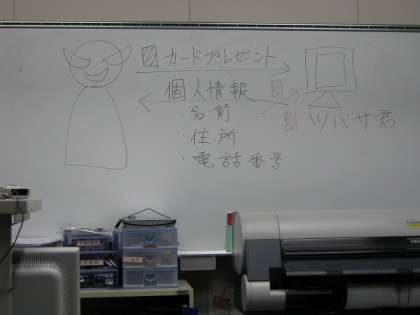 図カードプレゼント
個人情報
・名前
・住所
・電話番号
図
図 ツバサ君